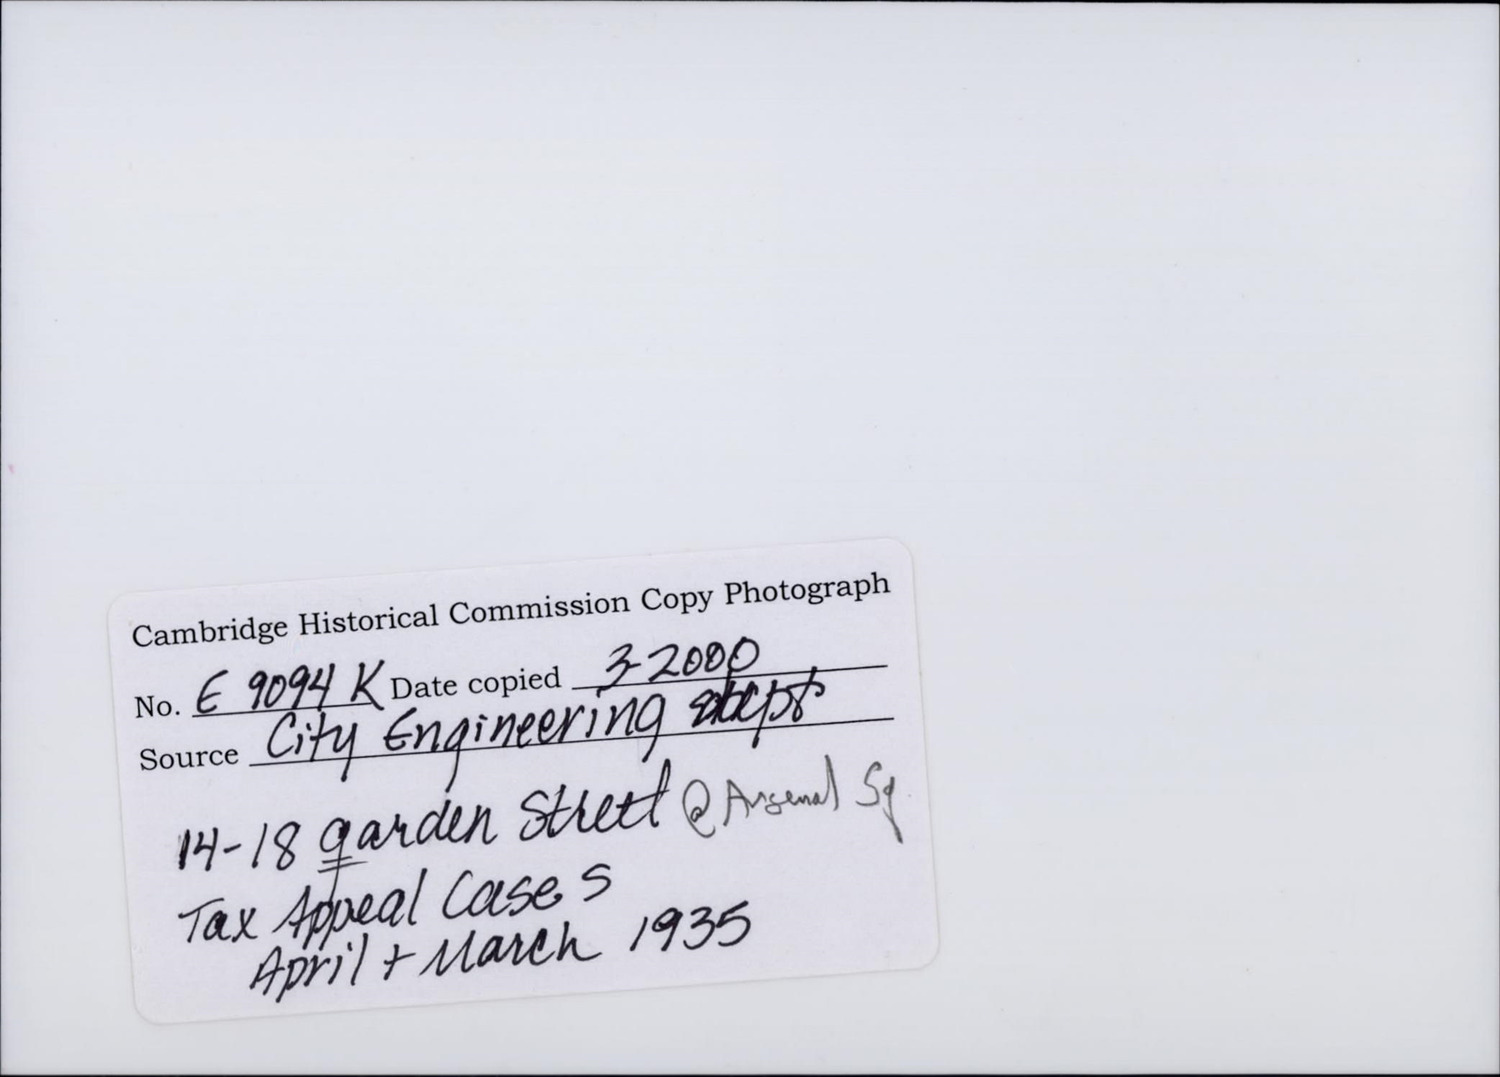 Cambridge Historical Commission Copy Photograph
No. E 9094 K Date copied 3-2000
Source City Engineering dept
14-18 garden Street @ Arsenal Sq
Tax Appeal Cases
April + March 1935